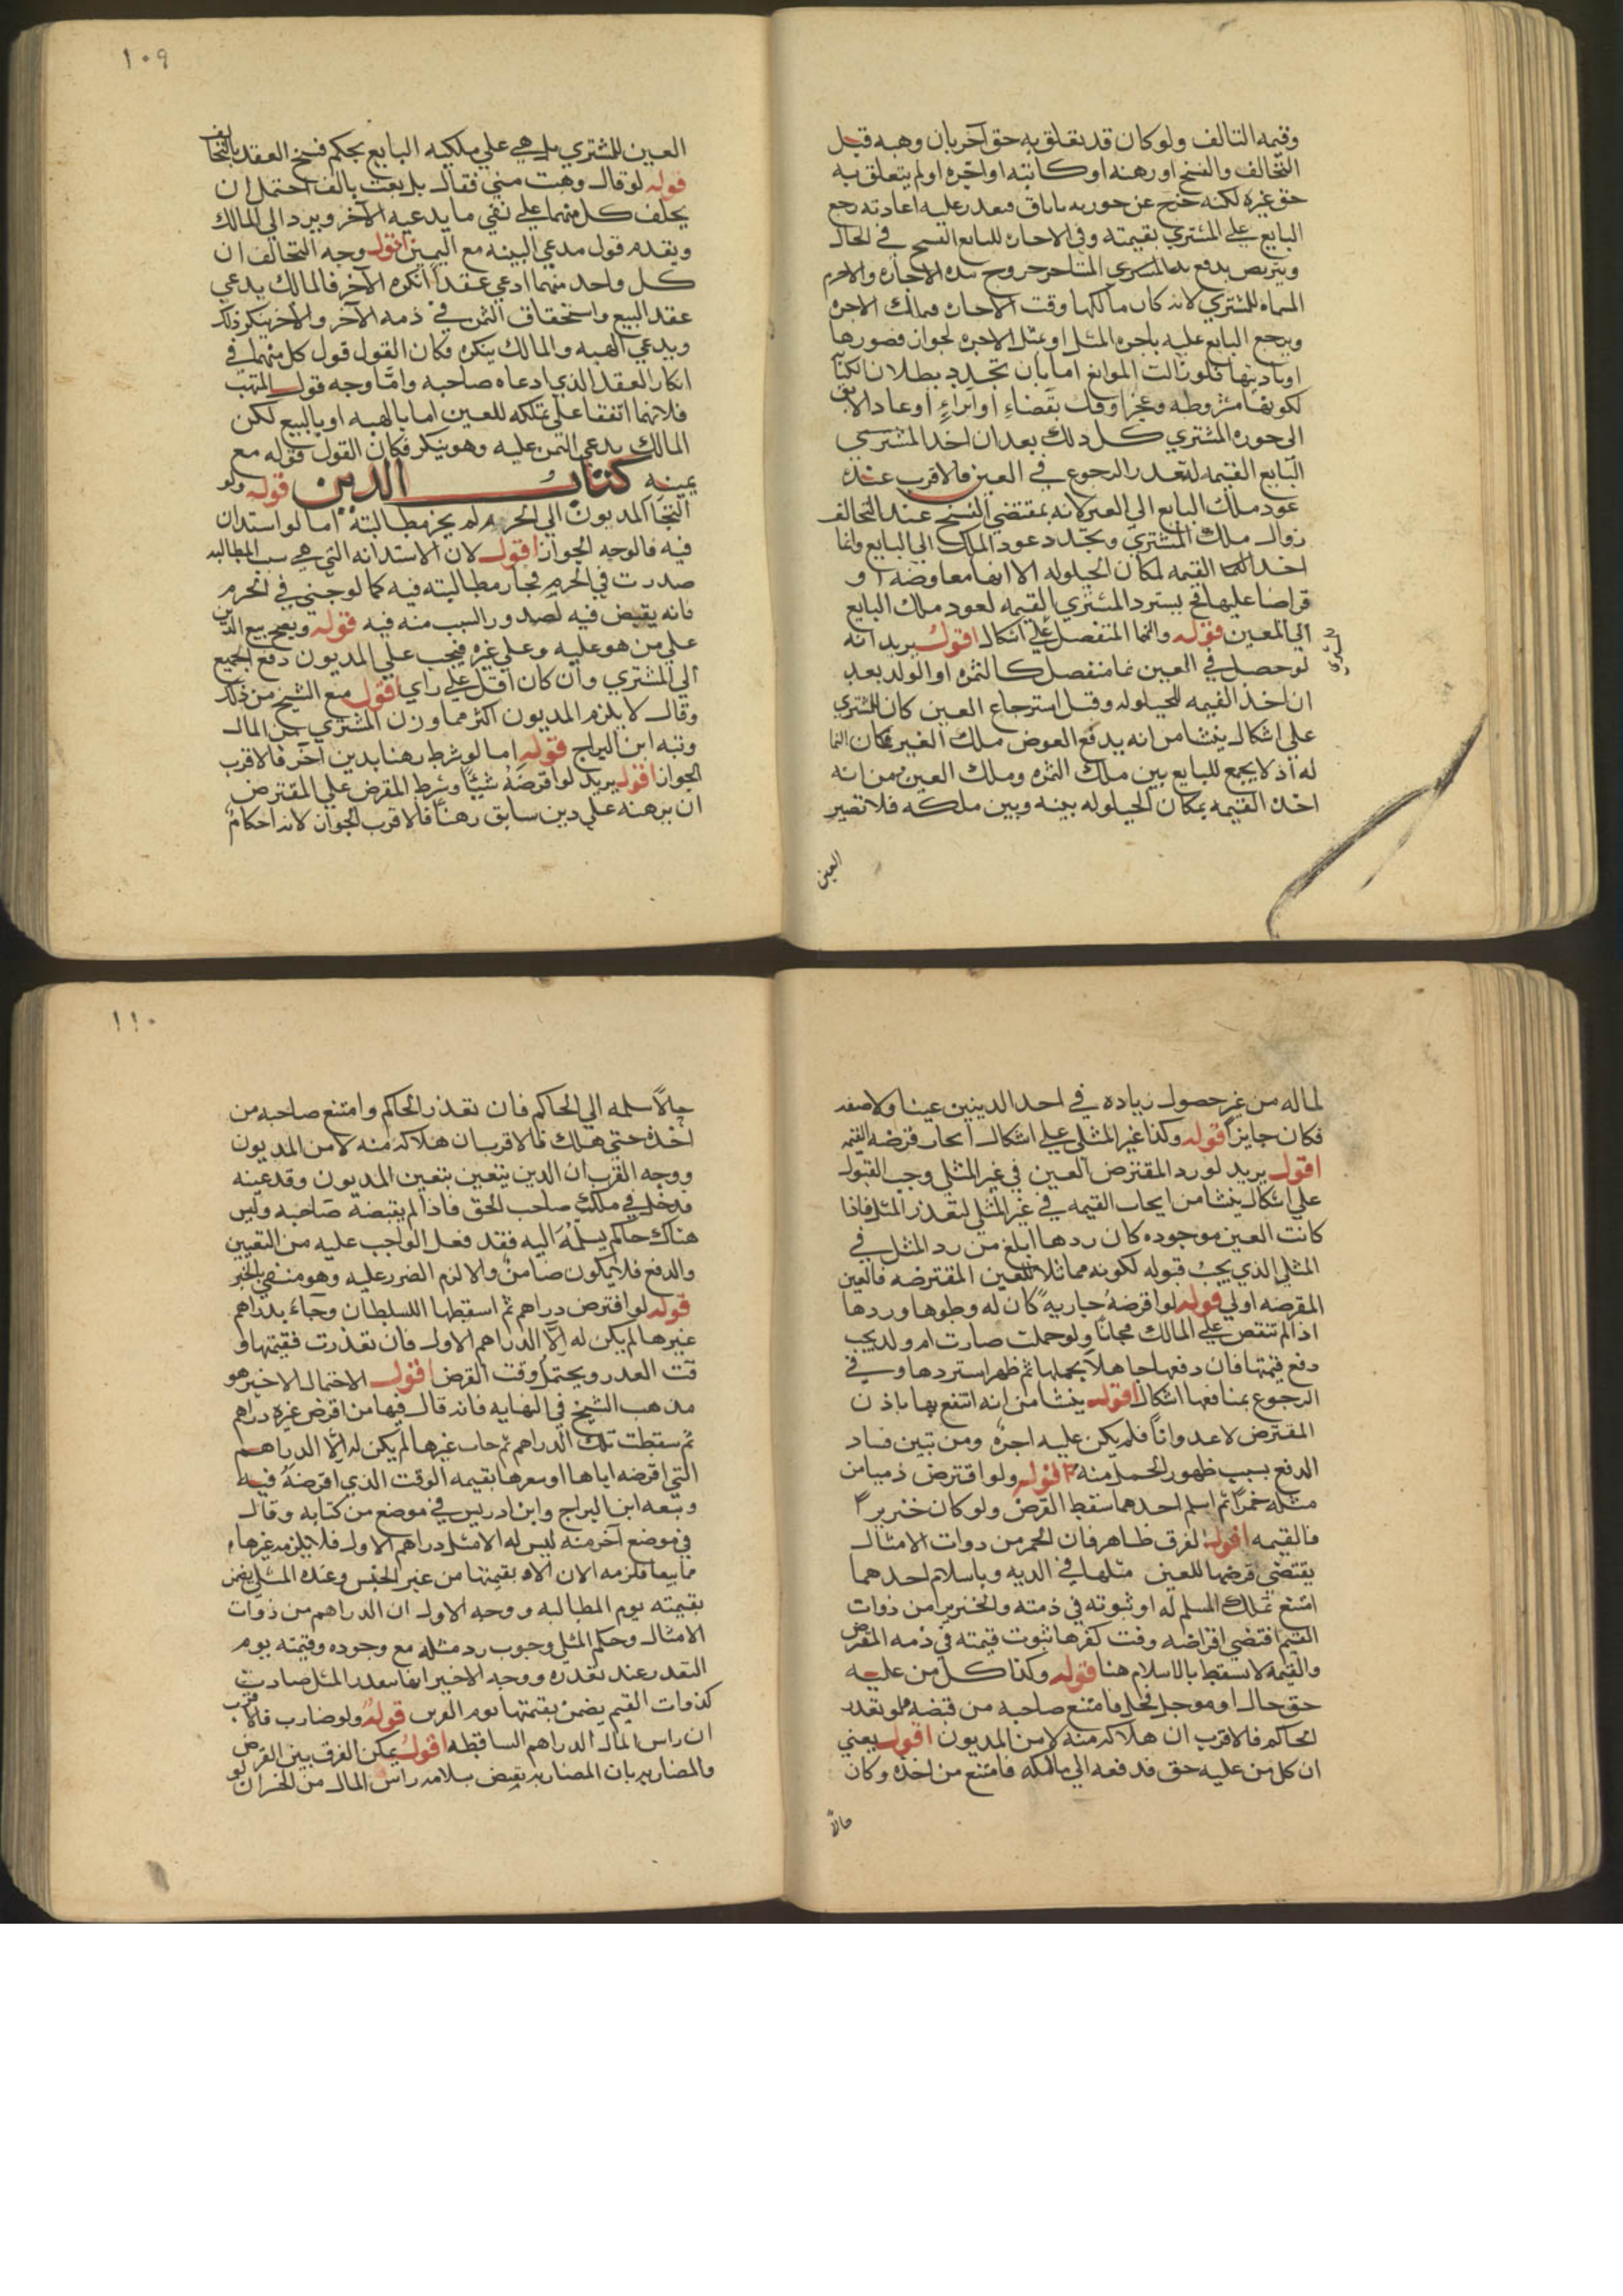 وقيمه التالف ولو كان قد تعلق به حق آخر بان وهبه قبل
التخالف والفسخ او رهنه او كاتبه او اجره او لم يتعلق به
حق غيره لكنه خرج عن حوزته باباق فتعذر عليه اعادته رجع
البايع علي المشتري بقيمته وفي الاجاره للبايع الفسخ في الحال
ويتربص بدفع المشتري المستاجر خروج مده الاجاره والاجره
المسماه للمشتري لانه كان مالكها وقت الاجاره فملك الاجره
ويرجع البايع عليه باجره المثل او مثل الاجره لجواز قصورها
او زيادتها فلو زالت الموانع اما بان تجدد بطلان الكتابة
لكونها مشروطه وعجز او فك بقضاءٍ او ابراءٍ او عاد الابق
الي حوزه المشتري كل ذلك بعد ان اخذ المشتري
البايع القيمه لتعذر الرجوع في العين فالاقرب عنده
عود ملك البايع الي العين لانه بمقتضي الفسخ عند التخالف
زوال ملك المشتري وتجدد عود الملك الي البايع وانما
اخذ القيمه لمكان الحيلوله لا انها معاوضه او
قراضا عليها فح يسترد المشتري القيمه لعود ملك البايع
الي المعين قوله والنما المنفصل علي اشكال اقول يريد انه
لو حصل في العين نما منفصل كالثمره او الولد بعد
ان اخذ القيمه للحيلوله وقبل استرجاع العين كان للمشتري
علي اشكال ينشا من انه يدفع العوض ملك الغير فكان النما
له اذ لا يجمع للبايع بين ملك الثمره وملك العين ومن انه
اخذ القيمه بمكان الحيلوله بينه وبين ملكه فلا تصير
العين
١٠٩
العين للمشتري بل هي علي ملكيه البايع بحكم فسخ العقد بالتخالف
قوله لو قال وهبت مني فقال بل بعت بالف احتمل ان
يحلف كل منهما علي نفي ما يدعيه الآخر ويرد الي المالك
ويقدم قول مدعي البينه مع اليمين اقول وجه التخالف ان
كل واحد منهما ادعي عقداً انكره الآخر فالمالك يدعي
عقد البيع واستحقاق الثمن في ذمه الآخر والآخر ينكر ذلك
ويدعي الهبه والمالك ينكره فكان القول قول كل منهما في
انكار العقد الذي ادعاه صاحبه وامّا وجه قول المتهب
فلانهما اتفقا علي تملكه للعين اما بالهبه او بالبيع لكن
المالك يدعي الثمن عليه وهو ينكر فكان القول قوله مع
يمينه كتاب الدين قوله ولو
التجا المديون الي الحرم لم يجز مطالبته اما لو استدان
فيه فالوجه الجواز اقول لان الاستدانه التي هي سبب المطالبه
صدرت في الحرم فجاز مطالبته فيه كما لو جني في الحرم
فانه يقتص فيه لصدور السبب منه فيه قوله ويصح بيع الدين
علي من هو عليه وعلي غيره فيجب علي المديون دفع الجميع
الي المشتري وان كان اقل علي راي اقول منع الشيخ من ذلك
وقال لا يلزم المديون اكثر مما وزن المشتري من المال
وتبعه ابن البراج قوله اما لو شرط رهنا بدين آخر فالاقرب
الجواز اقول يريد لو اقرضه شيئًا وشرط المقرض علي المقترض
ان يرهنه علي دين سابق رهناً فالاقرب الجواز لانه احكام
لماله من غير حصول زياده في احد الدينين عينا ولا صفه
فكان جايزاً قوله وكذا غير المثلي علي اشكال ايجاب قرضه القيمه
اقول يريد لو رد المقترض العين في غير المثلي وجب القبول
علي اشكال ينشا من ايجاب القيمه في غير المثلي لتعذر المثل فاذا
كانت العين موجوده كان ردها ابلغ من رد المثل في
المثلي الذي يجب قبوله لكونه مماثلا للعين المقترضه فالعين
المقرضه اولي قوله لو اقرضه جاريه كان له وطوها وردها
اذا لم تنقص علي المالك مجانا ولو حملت صارت ام ولد يجب
دفع قيمتها فان دفعها جاهلا بحملها ثم ظهر استردها وفي
الرجوع بمنافعها اشكال اقول ينشا من انه انتفع بها باذن
المقترض لا عدوانًا فلم يكن عليه اجره ومن تبين فساد
الدفع بسبب ظهور الحمل منه قوله ولو اقترض ذمي من
مثله خمرًا ثم اسلم احدهما سقط القرض ولو كان خنزيرا
فالقيمه اقول الفرق ظاهر فان الخمر من ذوات الامثال
يقتضي قرضها للعين مثلها في الذمه وباسلام احدهما
امتنع تملك المسلم له او ثبوته في ذمته والخنزير من ذوات
القيم اقتضي اقراضه وقت كفرهما ثبوت قيمته في ذمه المقترض
والقيمه لا تسقط بالاسلام هنا قوله وكذا كل من عليه
حق حال او موجل فحل فامتنع صاحبه من قبضه ولو تعذر
الحاكم فالاقرب ان هلاكه منه لا من المديون اقول يعني
ان كل من عليه حق فدفعه الي مالكه فامتنع من اخذه وكان
حالاً
١١٠
حالاً سلمه الي الحاكم فان تعذر الحاكم وامتنع صاحبه من
اخذه حتي هلك فالاقرب ان هلاكه منه لا من المديون
ووجه القرب ان الدين يتعين بتعين المديون وقد عينه
فدخل في ملك صاحب الحق فاذا لم يقبضه صاحبه وليس
هناك حاكم يسلمه اليه فقد فعل الواجب عليه من التعيين
والدفع فلا يكون ضامنٌ والا لزم الضرر عليه وهو منفي بالخبر
قوله لو اقترض دراهم ثم اسقطها السلطان وجاء بدراهم
غيرها لم يكن له الّا الدراهم الاول فان تعذرت فقيمتها و
قت العذر ويحتمل وقت القرض اقول الاحتمال الاخير هو
مذهب الشيخ في النهايه فانه قال فيها من اقرض غيره دراهم
ثم سقطت تلك الدراهم ثم جاءت غيرها لم يكن له الّا الدراهم
التي اقرضه اياها او سعرها بقيمه الوقت الذي اقرضه فيه
وتبعه ابن البراج وابن ادريس في موضع من كتابه وقال
في موضع آخر منه ليس له الا مثل دراهم الاول فلا يلزمه غيرها
بقيمتها من غير الجنس وعنده المثلي يضمن
بقيمته يوم المطالبه ووجه الاول ان الدراهم من ذوات
الامثال وحكم المثلي وجوب رد مثله مع وجوده وقيمته يوم
التعذر عند تعذره ووجه الاخير انها بتعذر المثل صارت
كذوات القيم يضمن بقيمتها يوم القرض قوله ولو ضارب فالاقرب
ان راس المال الدراهم الساقطه اقول يمكن الفرق بين القرض
والمضاربه بان المضاربه يقتضي سلامه راس المال من الخسران لو